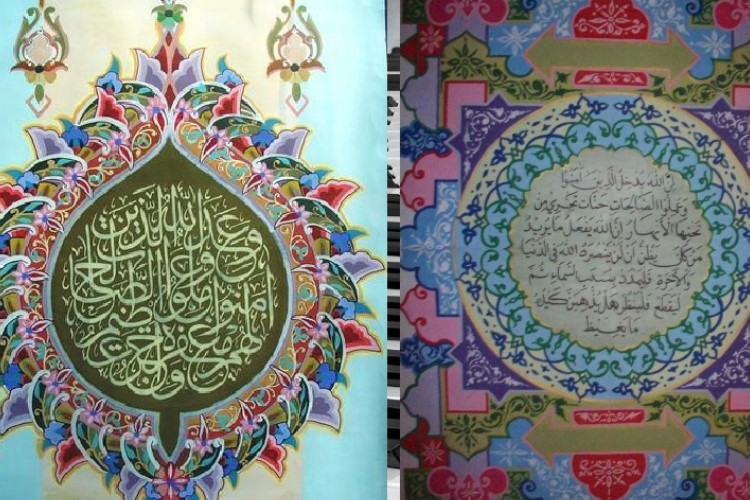 وعد الله الذين
آمنوا وعملوا الصالحات
لهم مغفرة وأجر عظيم
إن الله يدخل الذين آمنوا
وعملوا الصالحات جنات تجري من
تحتها الأنهار إن الله يفعل ما يريد
من كان يظن أن لن ينصره الله في الدنيا
والآخرة فليمدد بسبب إلى السماء ثم
ليقطع فلينظر هل يذهبن كيده
ما يغيظ